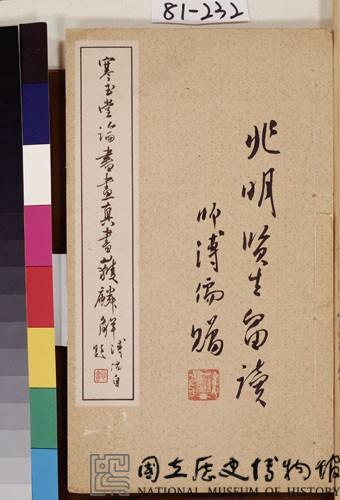 81-232
兆明賢生留讀
師溥儒贈
寒玉堂論書畫真書獲麟解
溥儒自題
國立歷史博物館
NATIONAL MUSEUM OF HISTORY